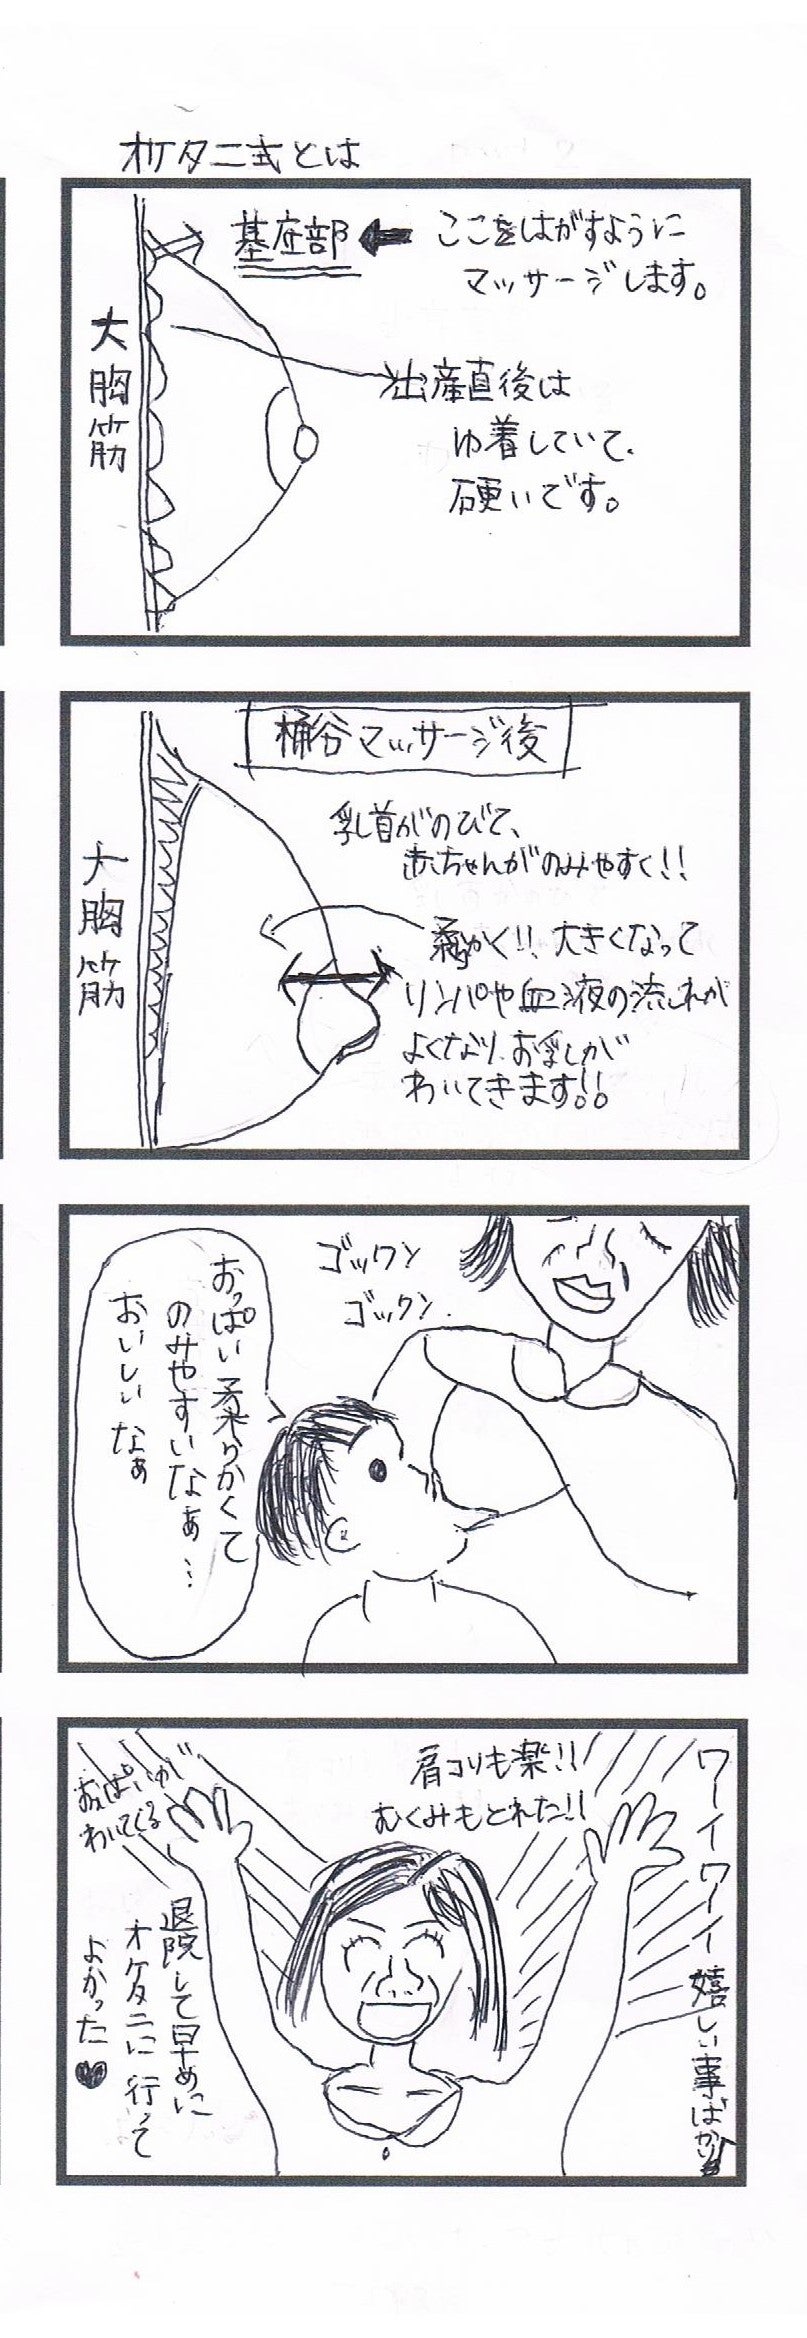 オケタニ式とは
基底部
ここをはがすように
マッサージします。
大胸筋
出産直後は
ゆ着していて、
硬いです。
桶谷マッサージ後
乳首がのびて、
赤ちゃんがのみやすく!!
大胸筋
柔かく!!大きくなって
リンパや血液の流れが
よくなり、お乳が
わいてきます!!
ゴックン
ゴックン.
おっぱい柔らかくて
のみやすいなぁ…
おいしいなぁ
ワーイワーイ嬉しい事ばかり♪
肩コリも楽!!
むくみもとれた!!
おっぱいが
わいてくる
退院して早めに
オケタニに行って
よかった♥